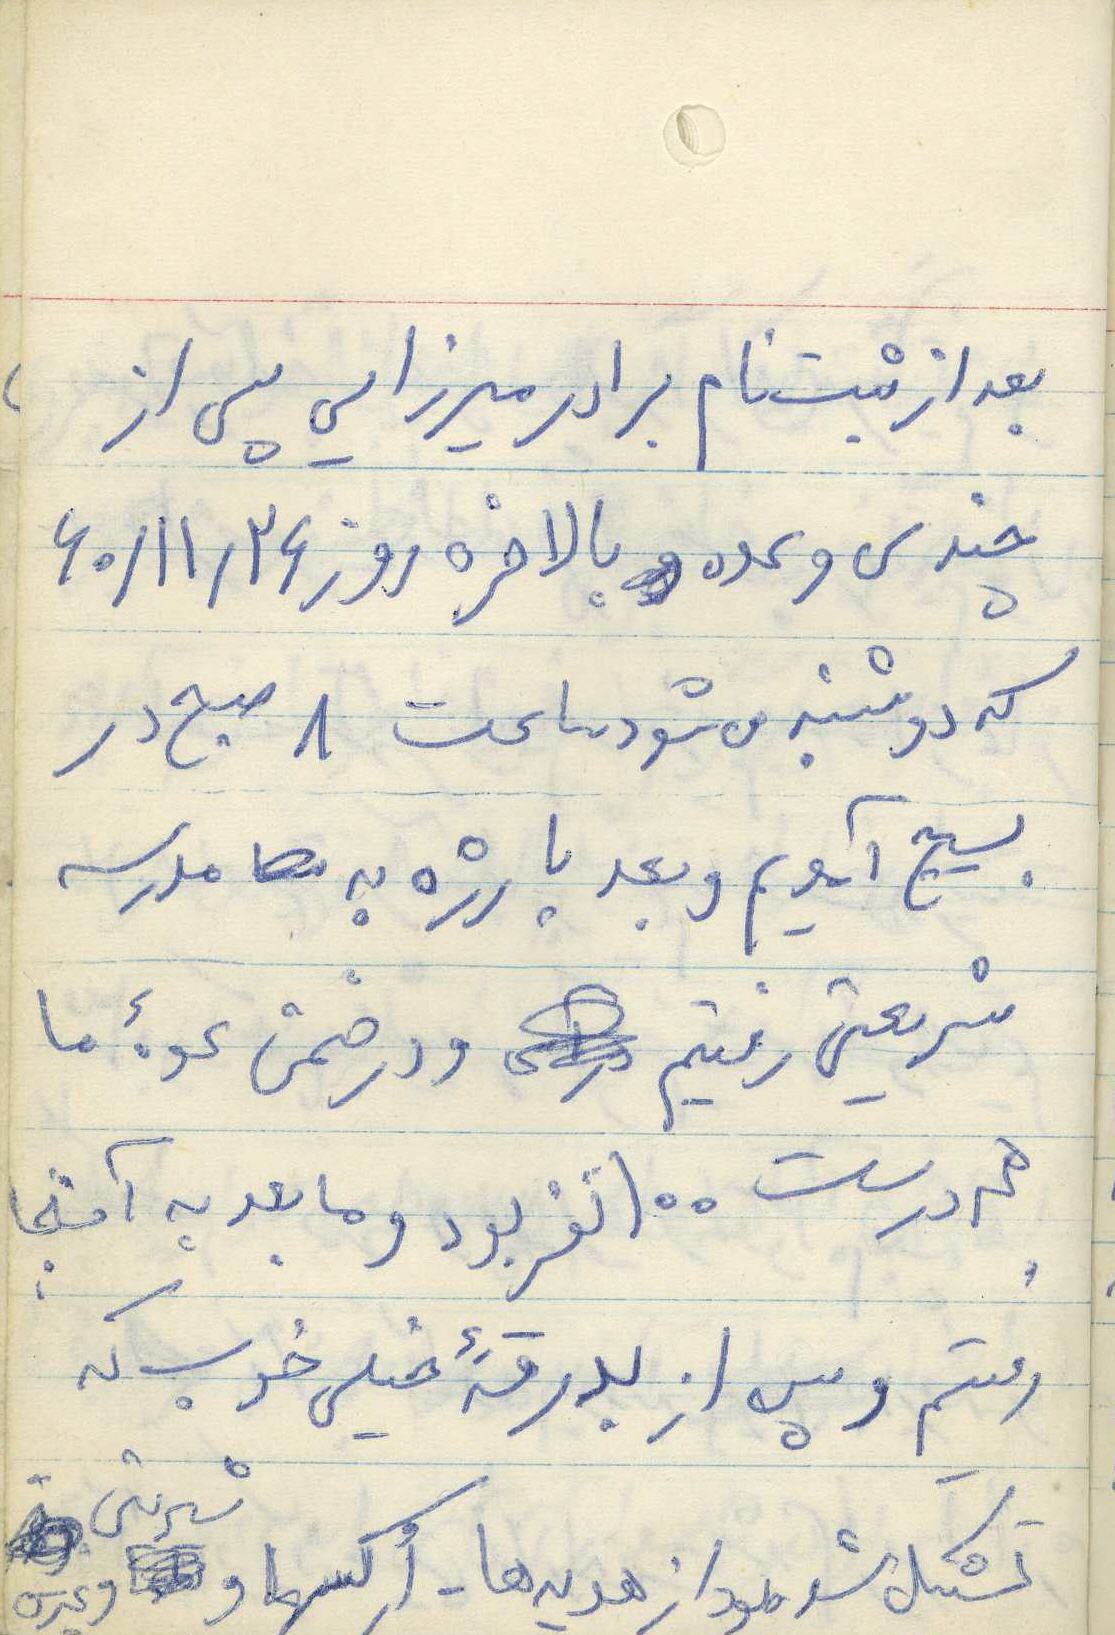 بعد از ثبت نام برادر میرزایی پس از
چندی وعده و بالاخره روز ۶۰/۱۱/۲۶
که دوشنبه می شود ساعت ۸ صبح در
بسیج آمدیم و بعد با رژه به مدرسه
شریعتی رفتیم و در ضمن عدهٔ ما
هم درست ۱۰۰ نفر بود و ما بعد به آنجا
رفتیم و پس از بدرقهٔ خیلی خوب که
تشکیل شده بود از هدیه ها - ارکسها و شربتی وغیره